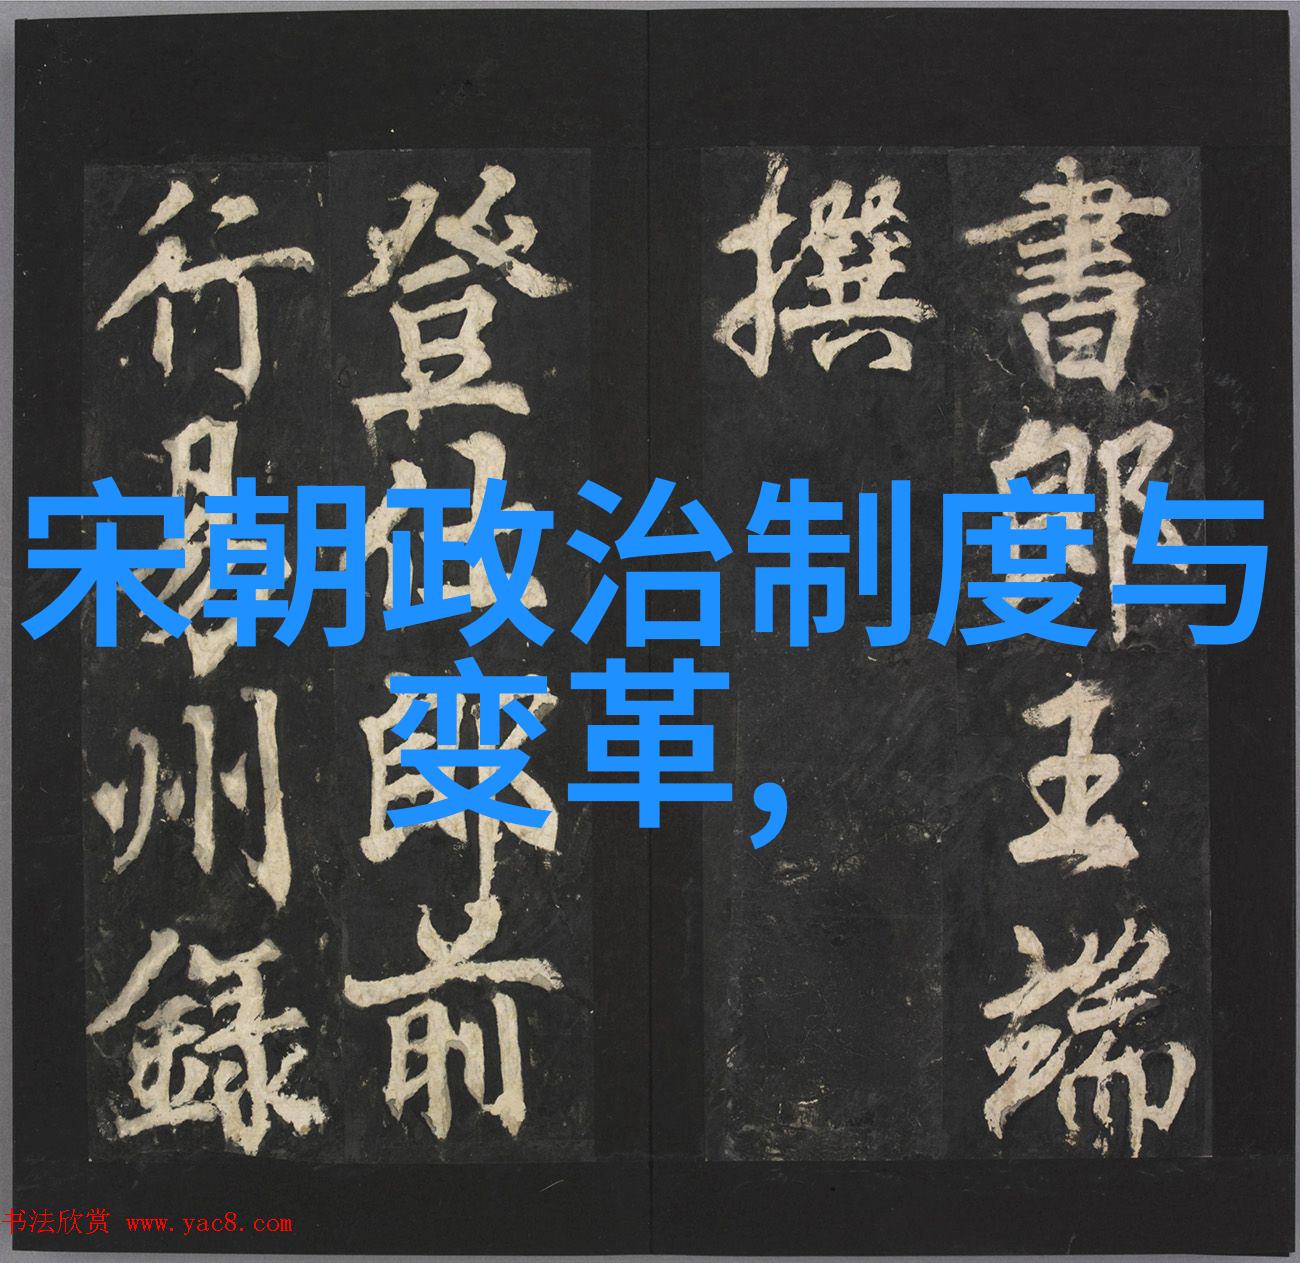 書郎王端
撰
登仕郎前
行易州錄
宋朝政治制度与
变革,
书法欣赏 www.yac8.com